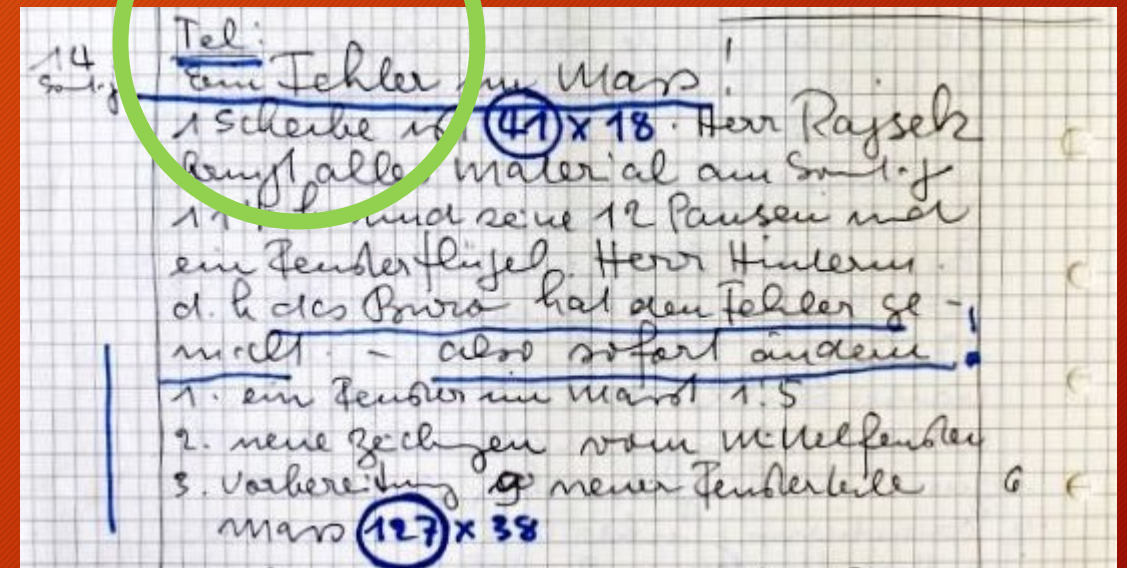 Tel:
14 ein Fehler im Mass!
1 Scheibe ist 41 x 18. Herr Rajsek
bringt alles Material am
11 h und seine 12 Pausen und
ein Fensterflügel. Herr Hinterm.
d. h das Büro hat den Fehler ge-
macht - also sofort ändern!
1. ein Fenster im Masst 1:5
2. neue Zeichngen vom Mittelfenster
3. Vorbereitung neuer Fensterteile 6
Mass 127 x 38